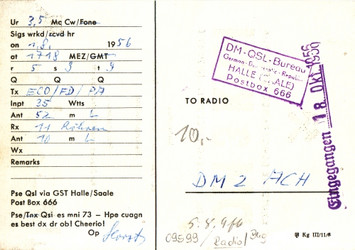 Ur 3,5 Mc Cw/Fone
Sigs wrkd/rcvd hr
on 1.8. 1956
at 1718 MEZ/GMT
5 s 9 9
Q Q Q Q
Tx ECO/FD/PA
Inpt 35 Wtts
Ant 52 m L
Rx 11 Röhren
Ant 10 m L
Wx
Remarks
Pse Qsl via GST Halle/Saale
Post Box 666
Pse/Tnx Qsl es mni 73 - Hpe cuagn
es best dx dr ob! Cheerio!
Op Horst
DM-QSL-Bureau
German Democratic Republic
HALLE (SAALE)
Postbox 666
Eingegangen 18. Okt. 1956
TO RADIO
10,-
DM 2 ACH
Kg III/11/6